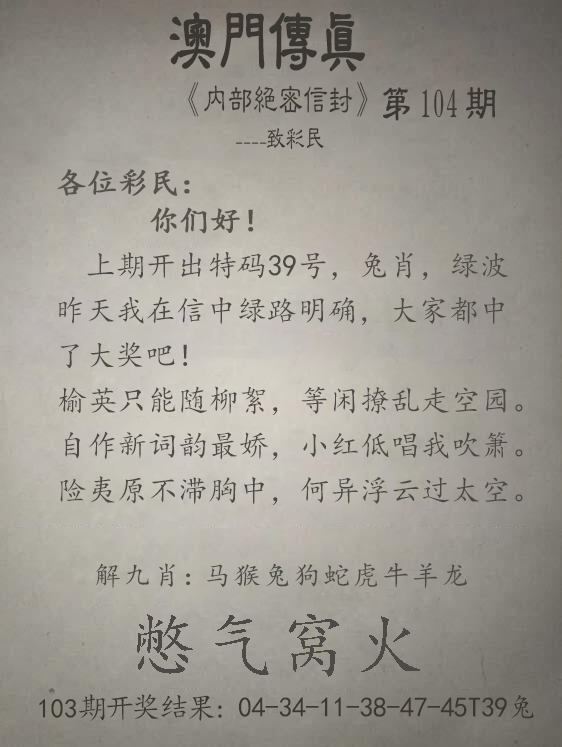 澳門傳真
《内部絕密信封》第104期
----致彩民
各位彩民：
你们好！
上期开出特码39号，兔肖，绿波
昨天我在信中绿路明确，大家都中
了大奖吧！
榆英只能随柳絮，等闲撩乱走空园。
自作新词韵最娇，小红低唱我吹箫。
险夷原不滞胸中，何异浮云过太空。
解九肖：马猴兔狗蛇虎牛羊龙
憋气窝火
103期开奖结果：04-34-11-38-47-45T39兔